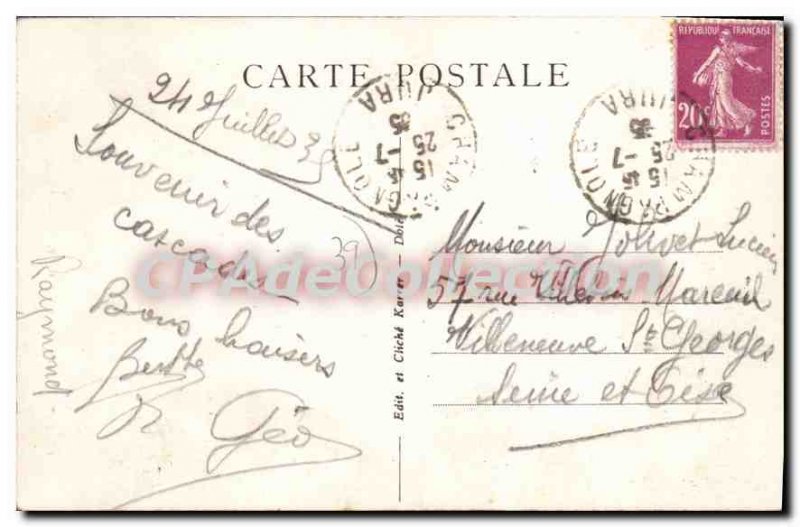 CARTE POSTALE
REPUBLIQUE FRANÇAISE
20c
POSTES
CHAMPAGNOLE
15 45
25 -7
35
JURA
CHAMPAGNOLE
15 45
25 -7
35
JURA
24 Juillet 35
Souvenir des
cascades
Bons baisers
Berthe
Géo
Raymond
39
Edit. et Cliché Karrer - Dole
Monsieur Jolivet Lucien
57 rue Mareuil
Villeneuve St Georges
Seine et Oise
CPADeCollection